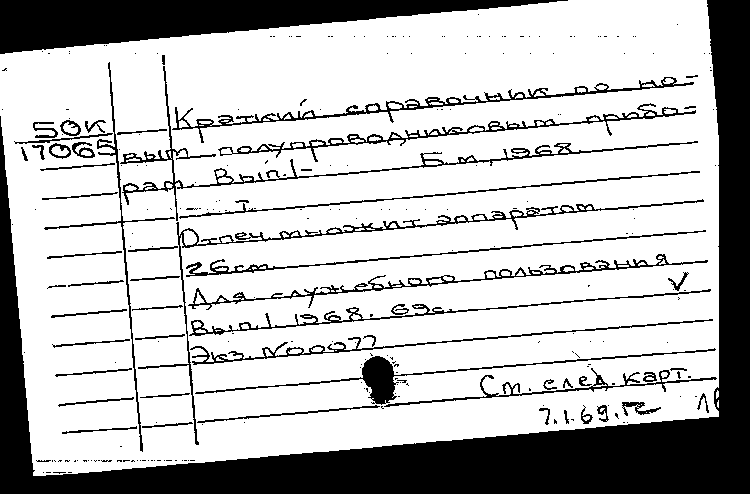 50К
17065
Краткий справочник по но-
вым полупроводниковым прибо-
рам. Вып. 1- Б.м., 1968.
- т.
Отпеч. множит. аппаратом
26см.
Для служебного пользования
Вып. 1. 1968. 69с. V
Экз. №00077
См. след. карт.
7.1.69.